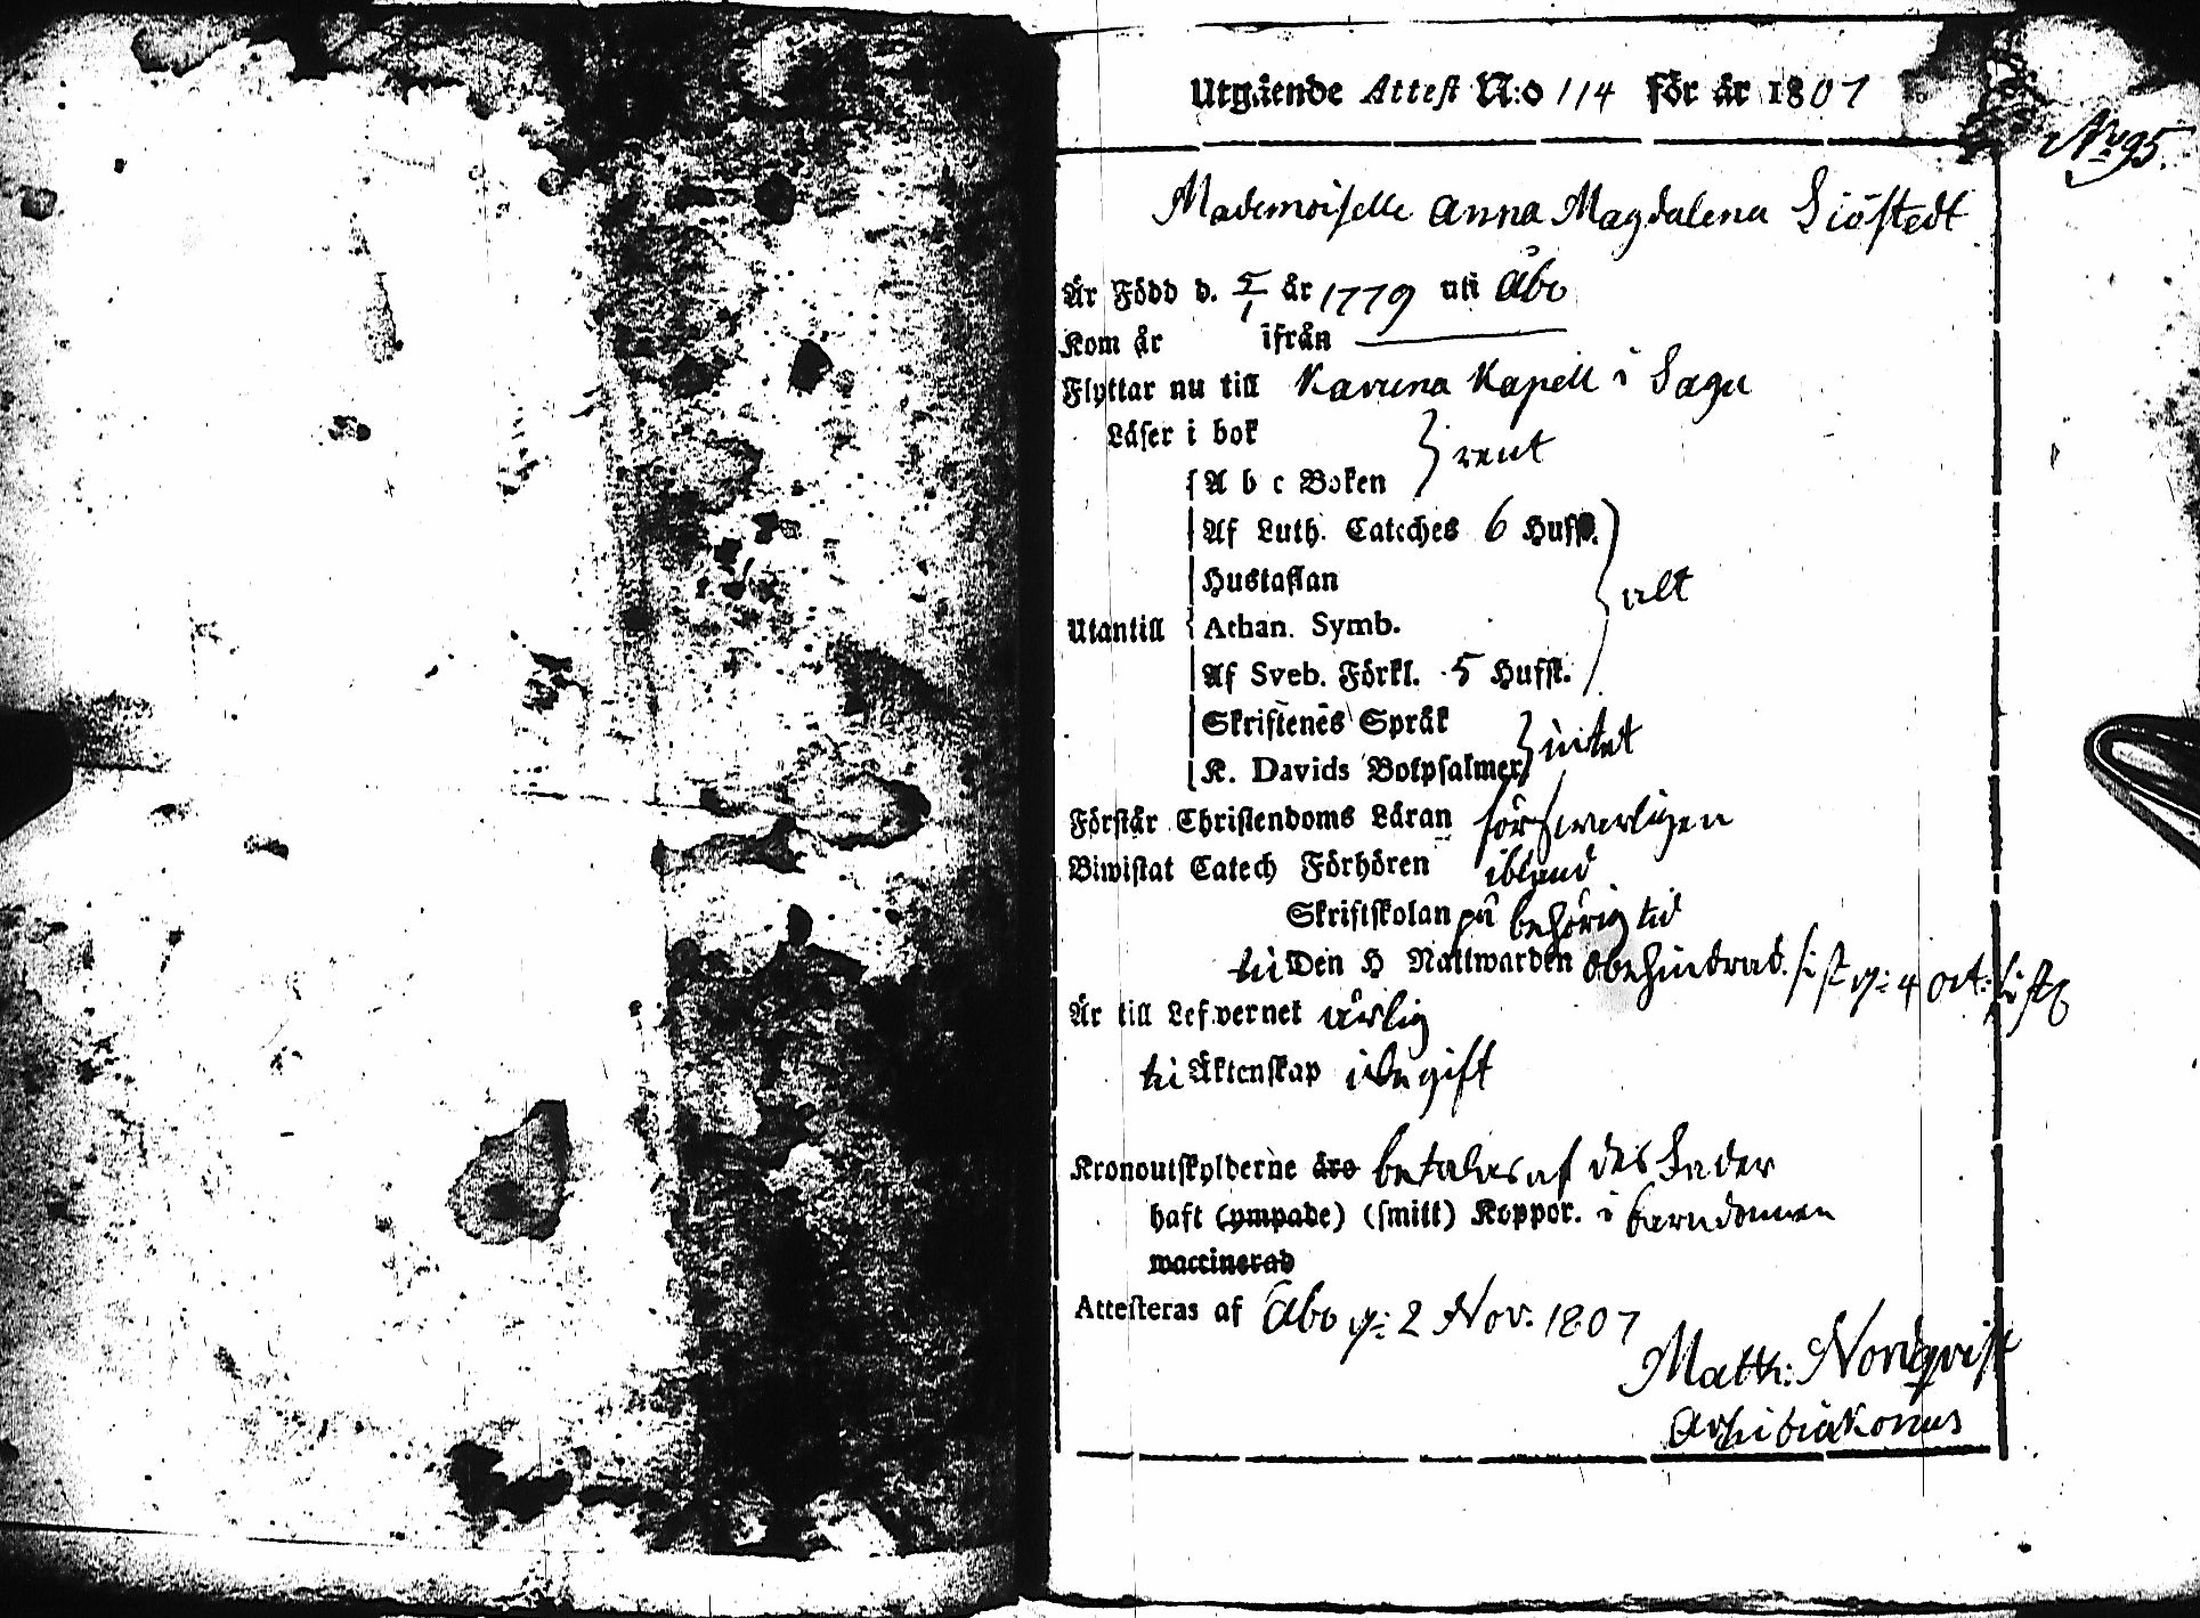 Utgående Attest N:o 114 för år 1807
No 95.
Mademoiselle Anna Magdalena Siöstedt
Är Född d. 5/1 år 1779 uti Åbo
Kom år ifrån
Flyttar nu till Karuna Kapell i Sagu
Läser i bok } rent
A b c Boken
Af Luth. Catches 6 Hufst.
Hustaflan } alt
Utantill Athan. Symb.
Af Sveb. Förkl. 5 Hufst.
Skriftenes Språk
K. Davids Botpsalmer } intet
Förstår Christendoms Läran försvarligen
Biwistat Catech Förhören ibland
Skriftskolan på behörig tid
till Den H Nattwarden obehindrad. sist 4 Oct:
Är till Lefvernet ärlig
till Äktenskap
Kronoutskylderne äro betalas af des Fader
haft (ympade) (smitt) Koppor. i barndomen
waccinerad
Attesteras af Åbo 2 Nov. 1807
Matth: Nordqvist
Archidiakonus